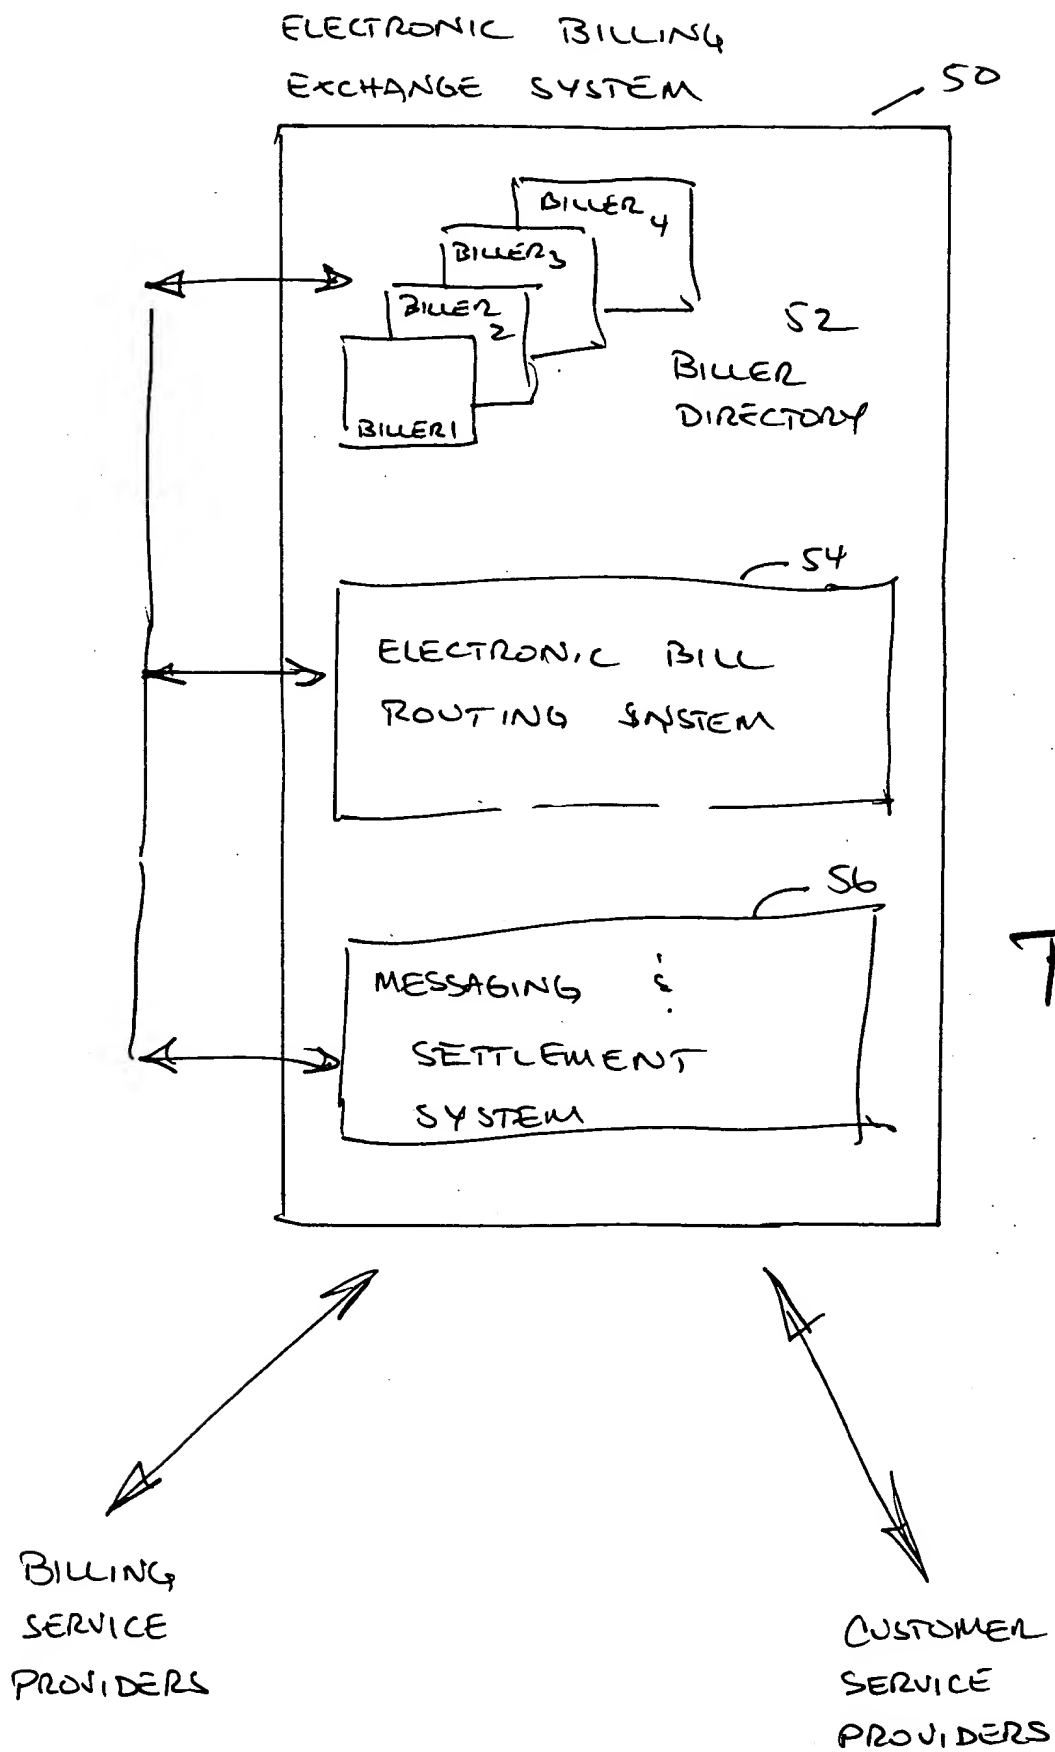 ELECTRONIC BILLING
EXCHANGE SYSTEM
50
BILLER 4
BILLER 3
BILLER 2
BILLER 1
52
BILLER
DIRECTORY
54
ELECTRONIC BILL
ROUTING SYSTEM
56
MESSAGING &
SETTLEMENT
SYSTEM
BILLING
SERVICE
PROVIDERS
CUSTOMER
SERVICE
PROVIDERS